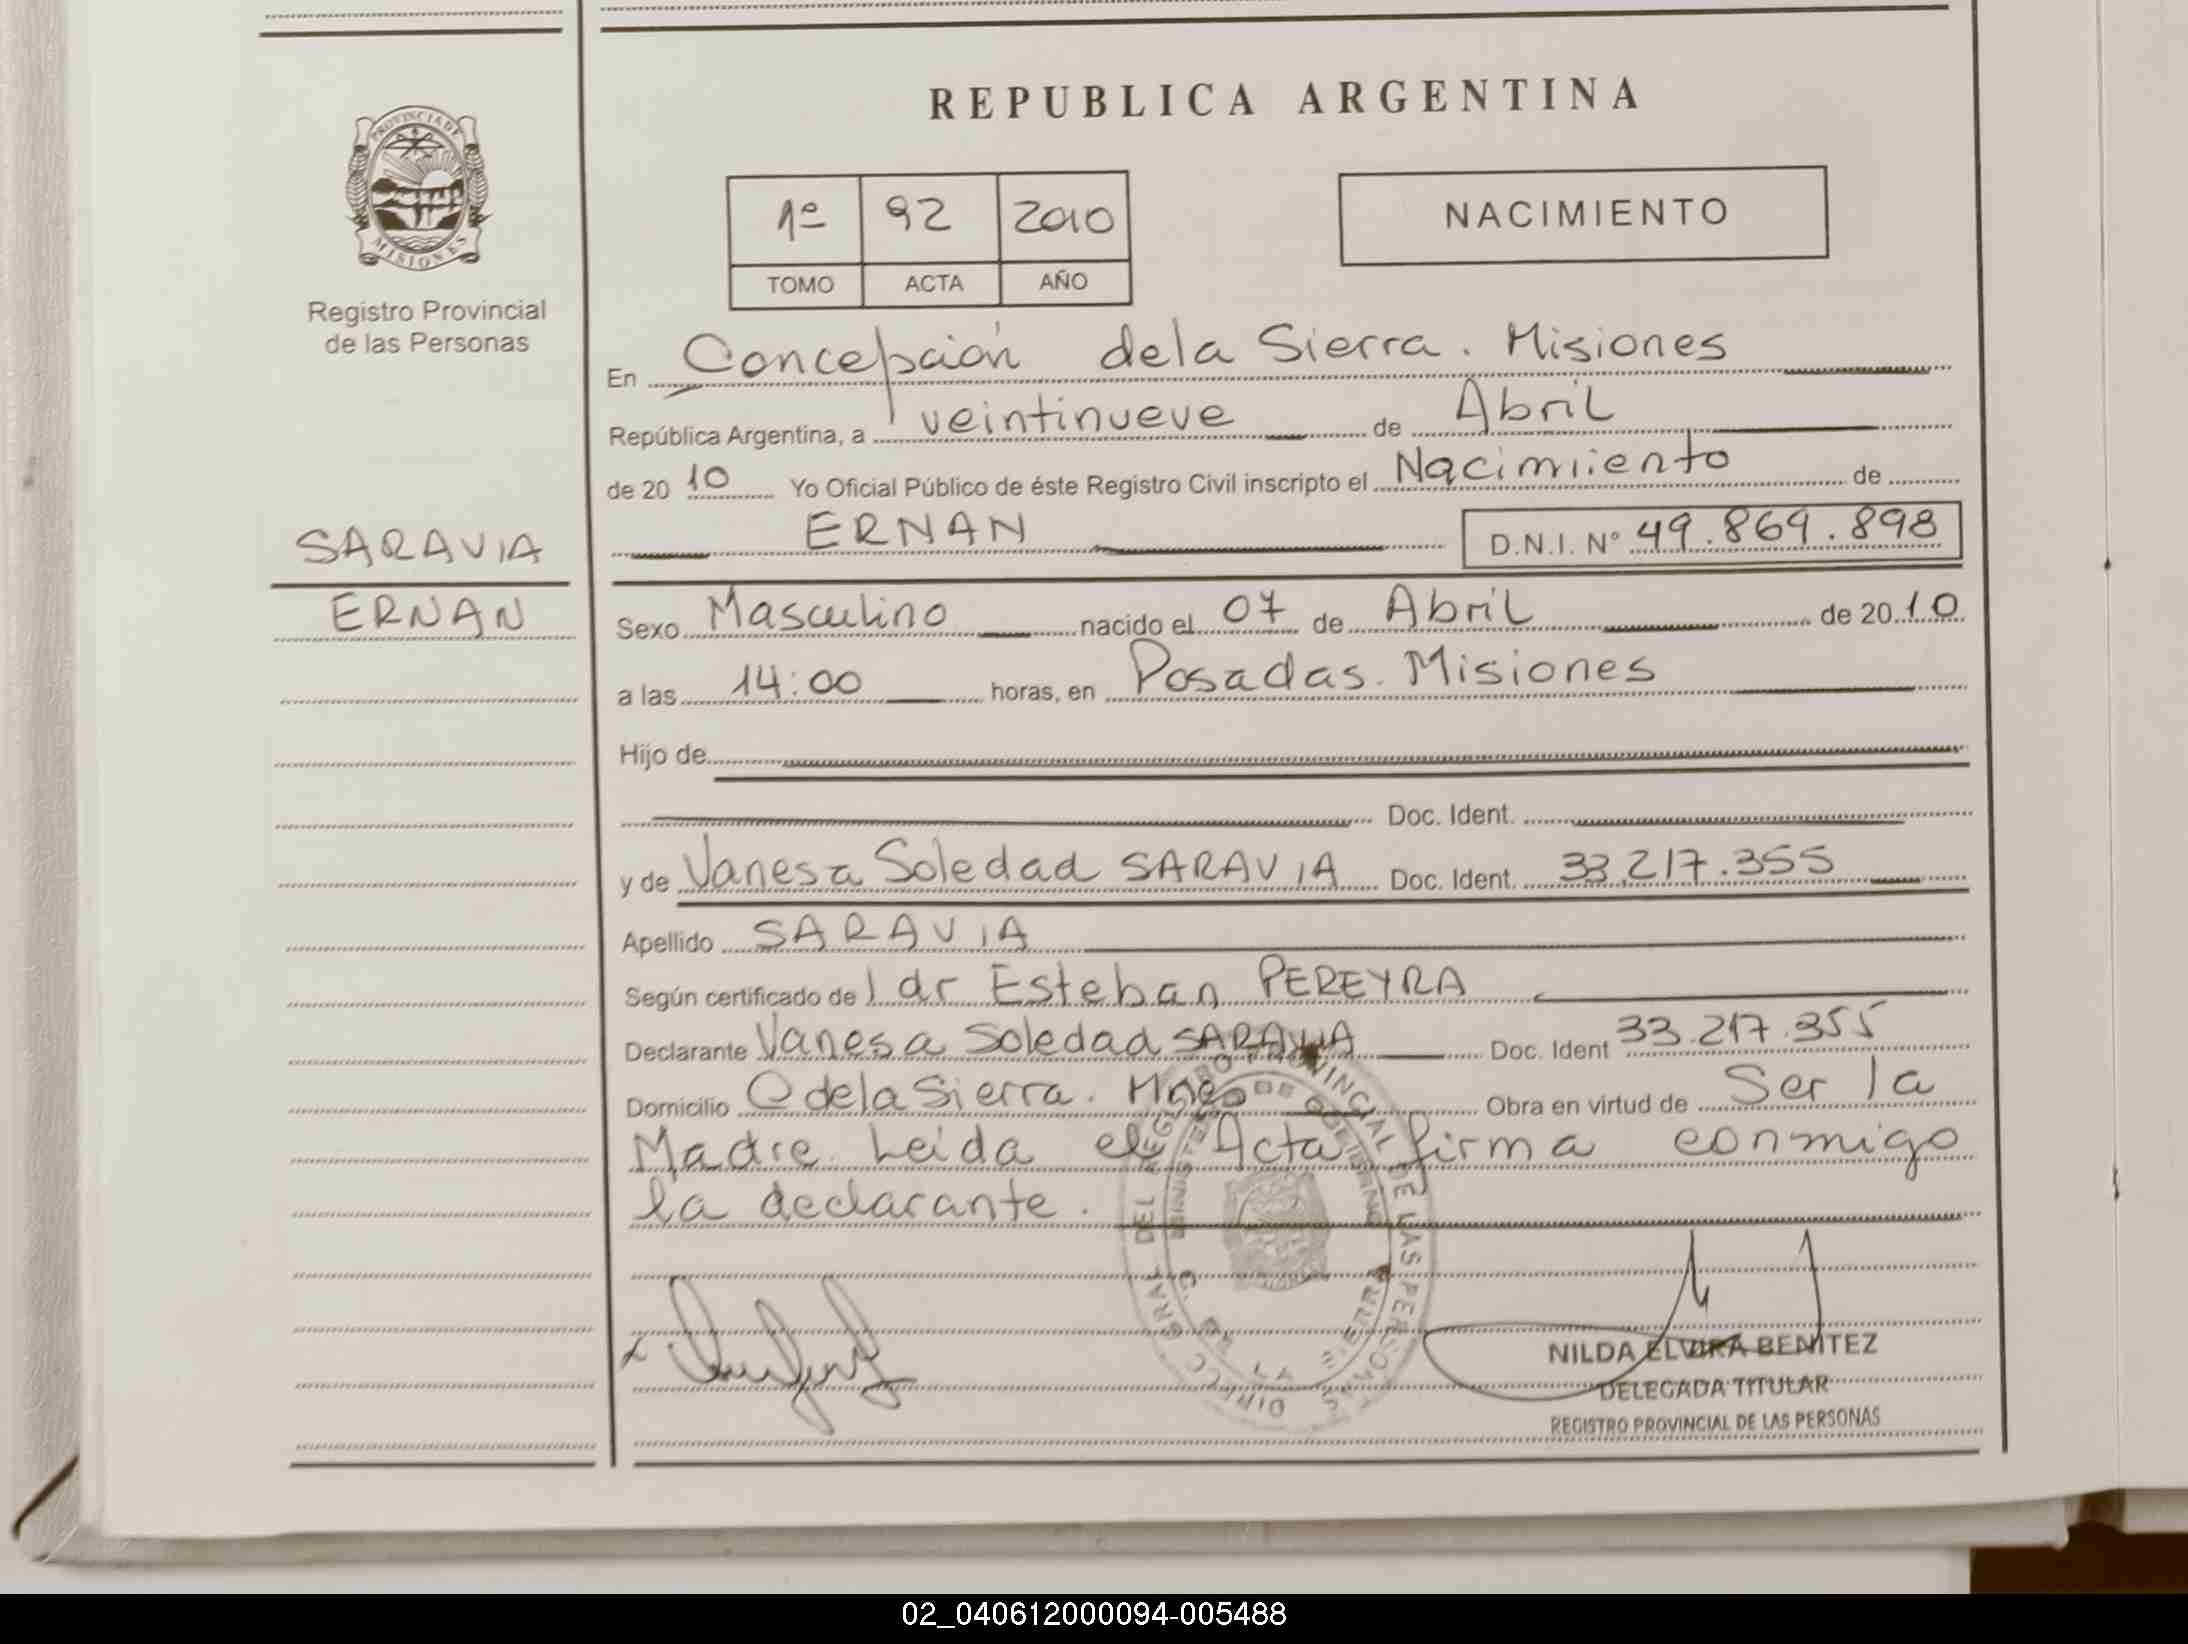 REPUBLICA ARGENTINA
PROVINCIA DE
MISIONES
Registro Provincial
de las Personas
1º 92 2010
TOMO ACTA AÑO
NACIMIENTO
En Concepción de la Sierra. Misiones
República Argentina, a veintinueve de Abril
de 2010 Yo Oficial Público de éste Registro Civil inscripto el Nacimiento de
ERNAN D.N.I. Nº 49.869.898
SARAVIA
ERNAN
Sexo Masculino nacido el 07 de Abril de 2010
a las 14:00 horas, en Posadas. Misiones
Hijo de
Doc. Ident.
y de Vanesa Soledad SARAVIA Doc. Ident. 33.217.355
Apellido SARAVIA
Según certificado de l dr Esteban PEREYRA
Declarante Vanesa Soledad SARAVIA Doc. Ident 33.217.355
Domicilio C de la Sierra. Mnes Obra en virtud de Ser la
Madre. Leida el Acta firma conmigo
la declarante.
DIRECC. GRAL. DEL REGISTRO PROVINCIAL DE LAS PERSONAS
MINISTERIO DE GOBIERNO
C. DE LA SIERRA
NILDA ELVIRA BENITEZ
DELEGADA TITULAR
REGISTRO PROVINCIAL DE LAS PERSONAS
02_040612000094-005488